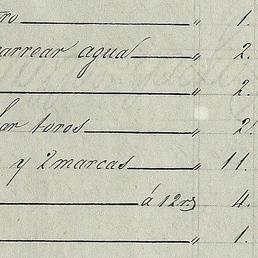 ro " 1.
arrear agua " 2.
" 2.
lar toros " 2.
y 2 marcas " 11.
á 12 rs " 4.
" 1.